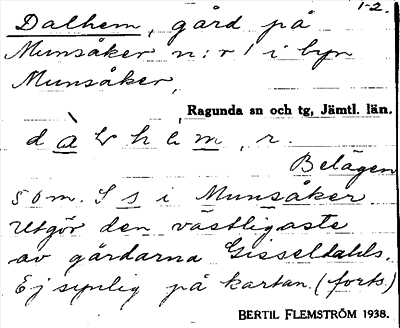 1-2.
Dalhem, gård på
Munsåker n:r 1 i byn
Munsåker,
Ragunda sn och tg, Jämtl. län.
d à l h e m, r.
Belägen
50m. S s i Munsåker
Utgör den västligaste
av gårdarna Gisseldahls.
Ej synlig på kartan. (forts.)
BERTIL FLEMSTRÖM 1938.